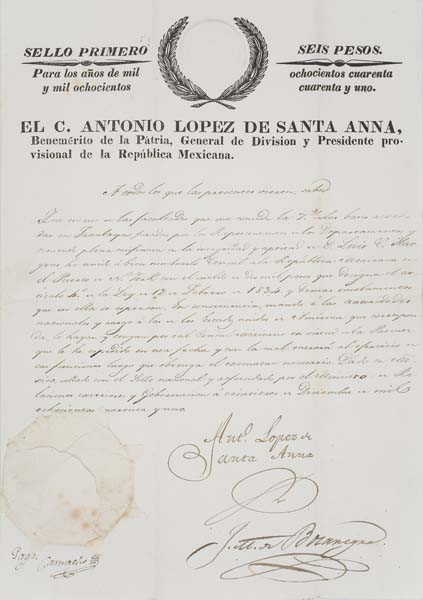 SELLO PRIMERO
SEIS PESOS.
Para los años de mil
y mil ochocientos
ochocientos cuarenta
cuarenta y uno.
EL C. ANTONIO LOPEZ DE SANTA ANNA,
Benemérito de la Pátria, General de Division y Presidente pro-
visional de la República Mexicana.
A todos los que las presentes vieren, sabed
Que en uso de las facultades que me concede la 7.ª de las bases acorda
das en Tacubaya por los Representantes de los Departamentos, y
teniendo plena confianza en la D. Luis
he venido á bien nombrarle Consul de la República Mexicana en
el Puerto de N. York con el sueldo de dos mil pesos que designa el ar
tículo 4.º de la Ley de 12 de Febrero de 1834, y demas emolumentos
que en ella se espresan. En consecuencia, mando á las autoridades
nacionales y ruego á las de los Estados Unidos de America que
le hayan y tengan por tal Consul mexicano en virtud de la Patente
que le he expedido en esta fecha y con la cual entrará al ejercicio de
sus funciones luego que obtenga el exequatur necesario. Dado en Me
xico, sellado con el Sello nacional y refrendado por el Ministro de Re
laciones exteriores y Gobernacion á de Diciembre de mil
ochocientos cuarenta y uno.
Ant.º Lopez de
Santa Anna
J. M. de Bocanegra
Pago.
Camacho